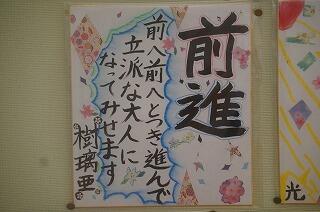 前進
前へ前へとつき進んで
立派な大人に
なってみせます
樹璃亜
光